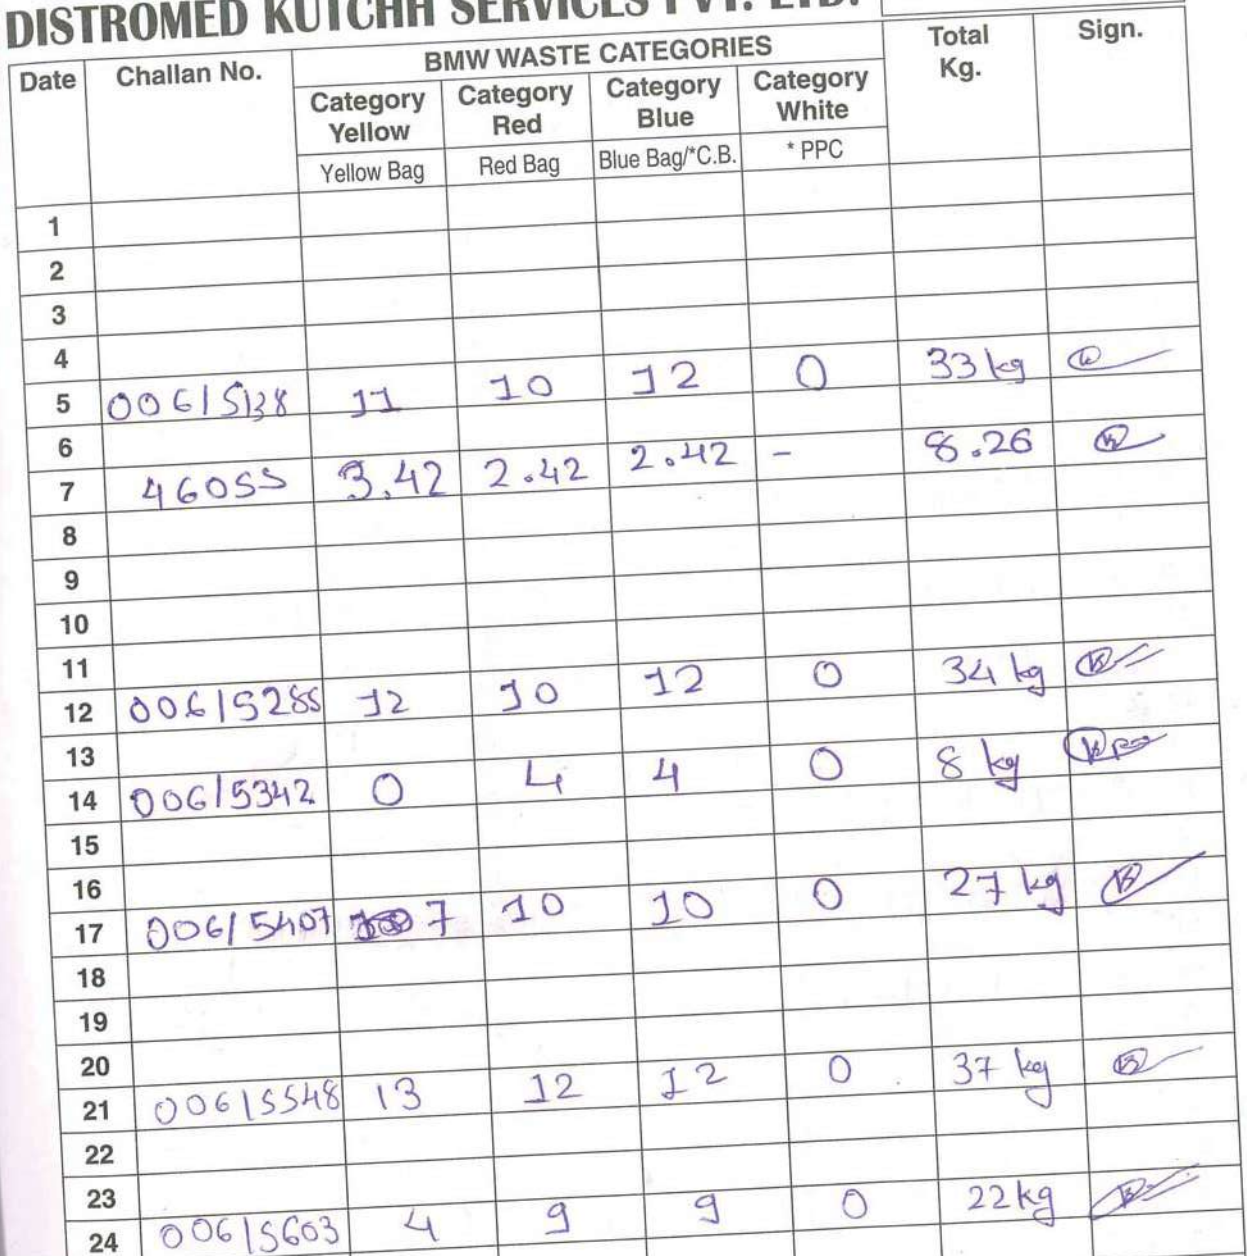 DISTROMED KUTCHH SERVICES PVT. LTD.
Date Challan No. BMW WASTE CATEGORIES Total Kg. Sign.
Category Yellow Category Red Category Blue Category White
Yellow Bag Red Bag Blue Bag/*C.B. * PPC
1
2
3
4
5 006/5138 11 10 12 0 33 kg
6
7 46055 3.42 2.42 2.42 - 8.26
8
9
10
11
12 006/5285 12 10 12 0 34 kg
13
14 006/5342 0 4 4 0 8 kg
15
16
17 006/5407 7 10 10 0 27 kg
18
19
20
21 006/5548 13 12 12 0 37 kg
22
23
24 006/5603 4 9 9 0 22 kg